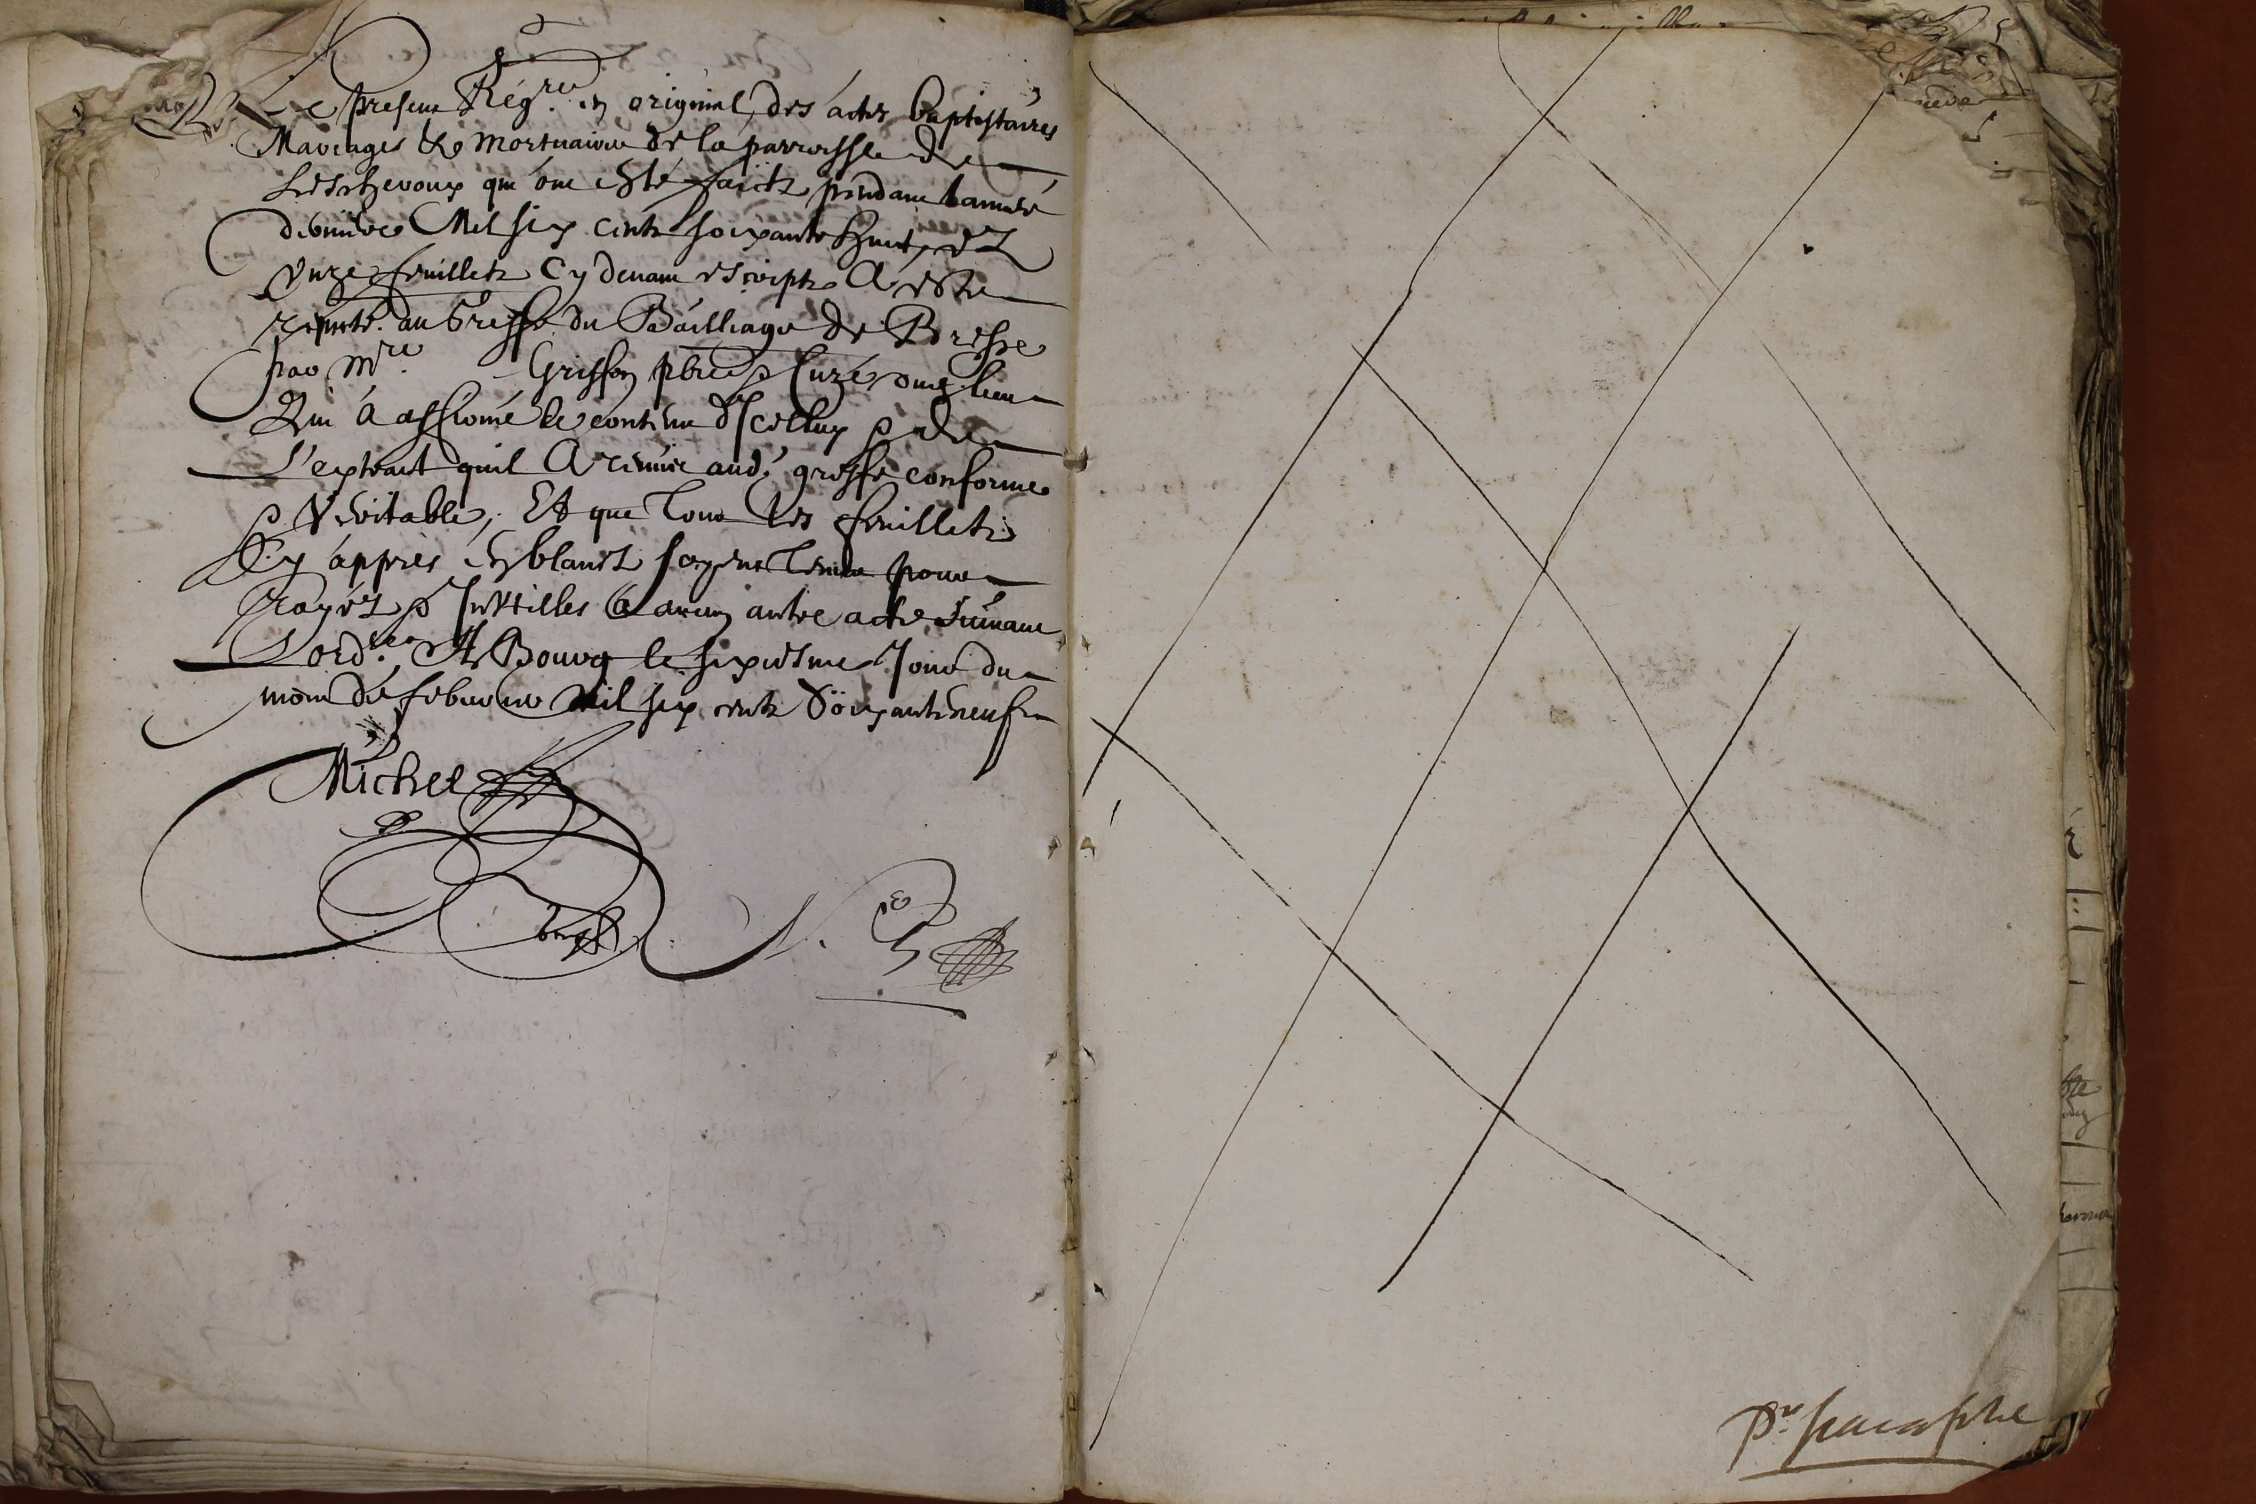 Le present Reg.re en original des actes baptistaires
Mariages & mortuaires de la parroisse de
Lescheroux qui ont esté faictz pendant lannée
derniere Mil six centz soixante huict, et
Unze feuilletz Cy devant escriptz A esté
represté. au Greffe du Bailliage de Bresse
par M.re Griffon pbre & Curé dud. lieu
Qui à affirmé le contenu d'Icelluy & de
L'extraict quil A remis aud. greffe conforme
& Veritable, Et que tous les feuilletz
Cy apprés en blanct soyent tenus pour
Rayéz & Inutilles a aucun autre acte suivant
L'ord.ce A Bourg le sixiesme Jour du
mois de febvrier Mil six centz soixante neuf
Michel
P.r paraphe